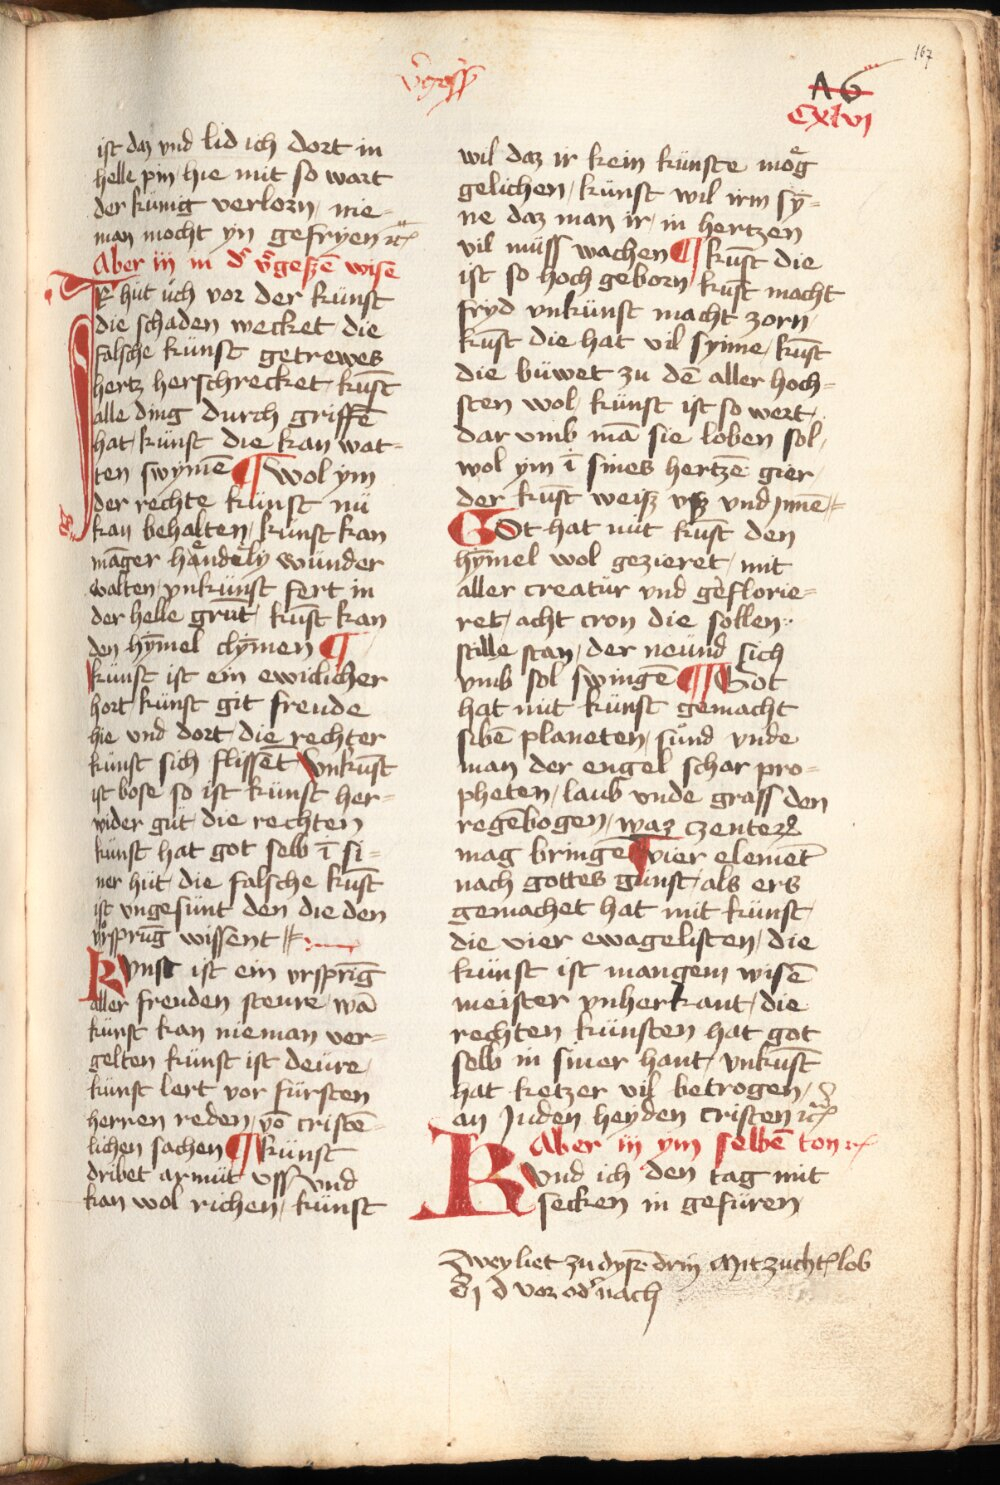 167
A6
CXlvj
ist daz vnd lid ich dort in
helle pin hie mit so wart
der künig verlorn / nie =
man mocht yn gefryen
Aber iij in d' v'geszē wise
Ir hüt üch vor der künst
die schaden wecket die
falsche künst getrewes
hertz herschrecket künst
alle ding durch griffē
hat / künst die kan wat =
ten swymē ¶ wol ym
der rechte künst nü
kan behalten / kunst kan
māger handely wunder
walten / vnkunst fert in
der helle grūt / kūst kan
den hȳmel clȳmen ¶
künst ist ein ewiclicher
hort / künst git freude
hie vnd dort die rechter
künst sich flissēt / vnkūst
ist bose so ist künst her =
wider gut / die rechten
künst hat got selb ī si =
ner hüt / die falsche kūst
ist vngesunt den die den
vrsprūg wissent
Kvnst ist ein vrsprīg
aller freuden steure / wā
künst kan nieman ver =
gelten künst ist deüre /
künst lert vor fürsten
herren reden / vō cristē =
lichen sachen ¶ künst
dribet armüt vss / vnd
kan wol richen / künst
wil daz ir kein künste mog
gelichen / künst wil irm sy =
ne daz man ir / in hertzen
vil müss wachen ¶ kūst die
ist so hoch geborn / kūst macht
fryd vnkünst macht zorn /
kūst die hat vil syīne / kūst
die büwet zu dē aller hoch =
sten wol / künst ist so wert /
dar vmb mā sie loben sol /
wol ym ī sines hertzē gier /
der kūst weisz vsz vnd jnnē
Got hat mit kūst den
hȳmel wol gezieret / mit
aller creatür vnd geflorie =
ret / acht cron die sollen
stille stan / der neünd sich
vmb sol swingē ¶ Got
hat mit künst gemacht
sibē planeten / sünd vnde
man der engel schar pro =
pheten / laub vnde grass den
regēbogen / waz czenterz
mag bringē ¶ vier elemēt
nach gottes günst / als ers
gemachet hat mit künst /
die vier ewagelisten / die
künst ist mangem wisē
meister vnherkant / die
rechten künsten hat got
selb in siner hant / vnkūst
hat ketzer vil betrogen /
an Juden heyden cristen
Aber iij ym selbē ton
Kvnd ich den tag mit
secken in gefüren
Zwey liet zu dysē drin Mit zucht lob
vor od' nach